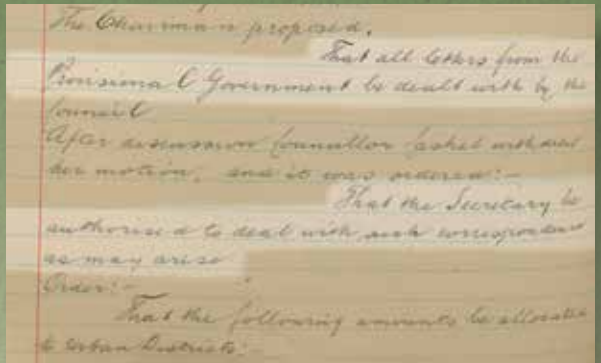 The Chairman proposed,
That all letters from the
Provisional Government be dealt with by the
Council
After discussion Councillor withdrew
her motion, and it was ordered:-
That the Secretary be
authorised to deal with such correspondence
as may arise
Order:-
That the following amounts be allocated
to Urban Districts: